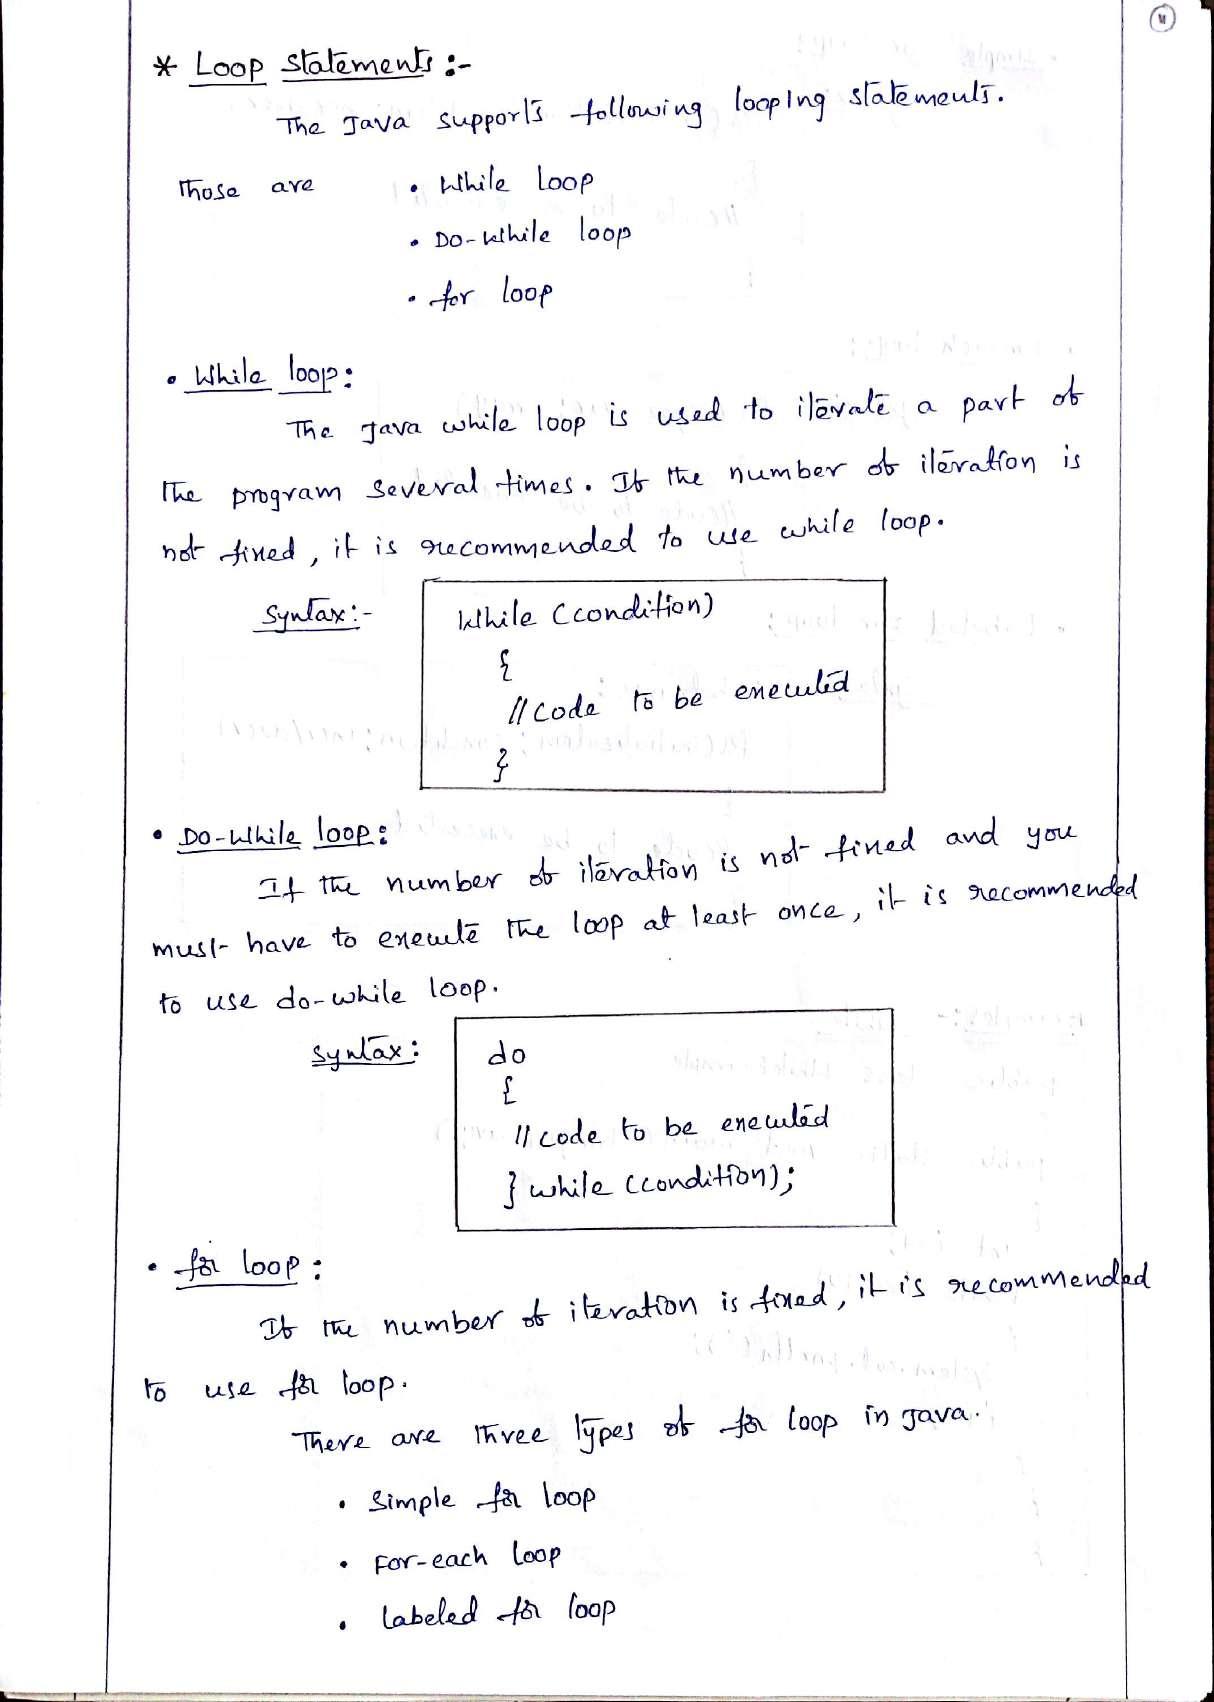 * Loop statements :-
The Java supports following looping statements.
Those are • While loop
• Do-while loop
• for loop
• While loop:
The Java while loop is used to iterate a part of
the program several times. If the number of iteration is
not fixed, it is recommended to use while loop.
Syntax:- While (condition)
{
// code to be executed
}
• Do-While loop:
If the number of iteration is not fixed and you
must have to execute the loop at least once, it is recommended
to use do-while loop.
Syntax: do
{
// code to be executed
} while (condition);
• for loop:
If the number of iteration is fixed, it is recommended
to use for loop.
There are three types of for loop in Java.
• Simple for loop
• For-each loop
• Labeled for loop